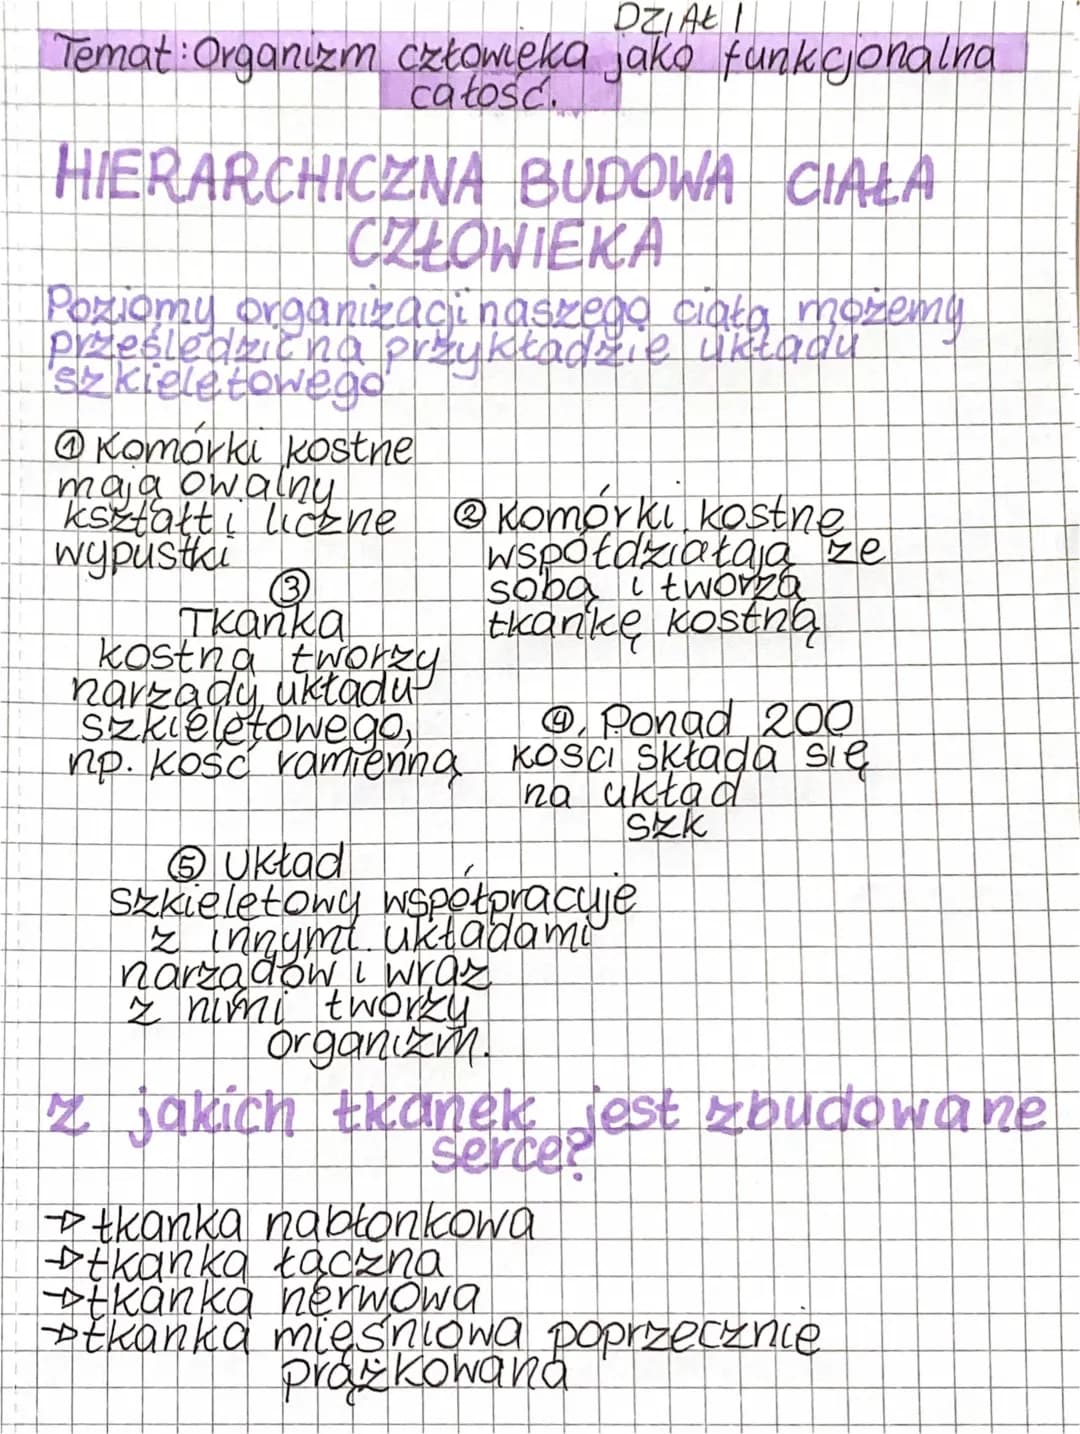 DZIAŁ 1
Temat: Organizm człowieka jako funkcjonalna
całość.
HIERARCHICZNA BUDOWA CIAŁA
CZŁOWIEKA
Poziomy organizacji naszego ciała możemy
prześledzić na przykładzie układu
szkieletowego
① Komórki kostne
mają owalny
kształt i liczne
wypustki
② Komórki kostne
współdziałają ze
sobą i tworzą
tkankę kostną
③
Tkanka
kostna tworzy
narządy układu
szkieletowego,
np. kość ramienną
④. Ponad 200
kości składa się
na układ
szk
⑤ Układ
szkieletowy współpracuje
z innymi układami
narządów i wraz
z nimi tworzy
organizm.
z jakich tkanek jest zbudowane
serce?
→ tkanka nabłonkowa
→ tkanka łączna
→ tkanka nerwowa
→ tkanka mięśniowa poprzecznie
prążkowana